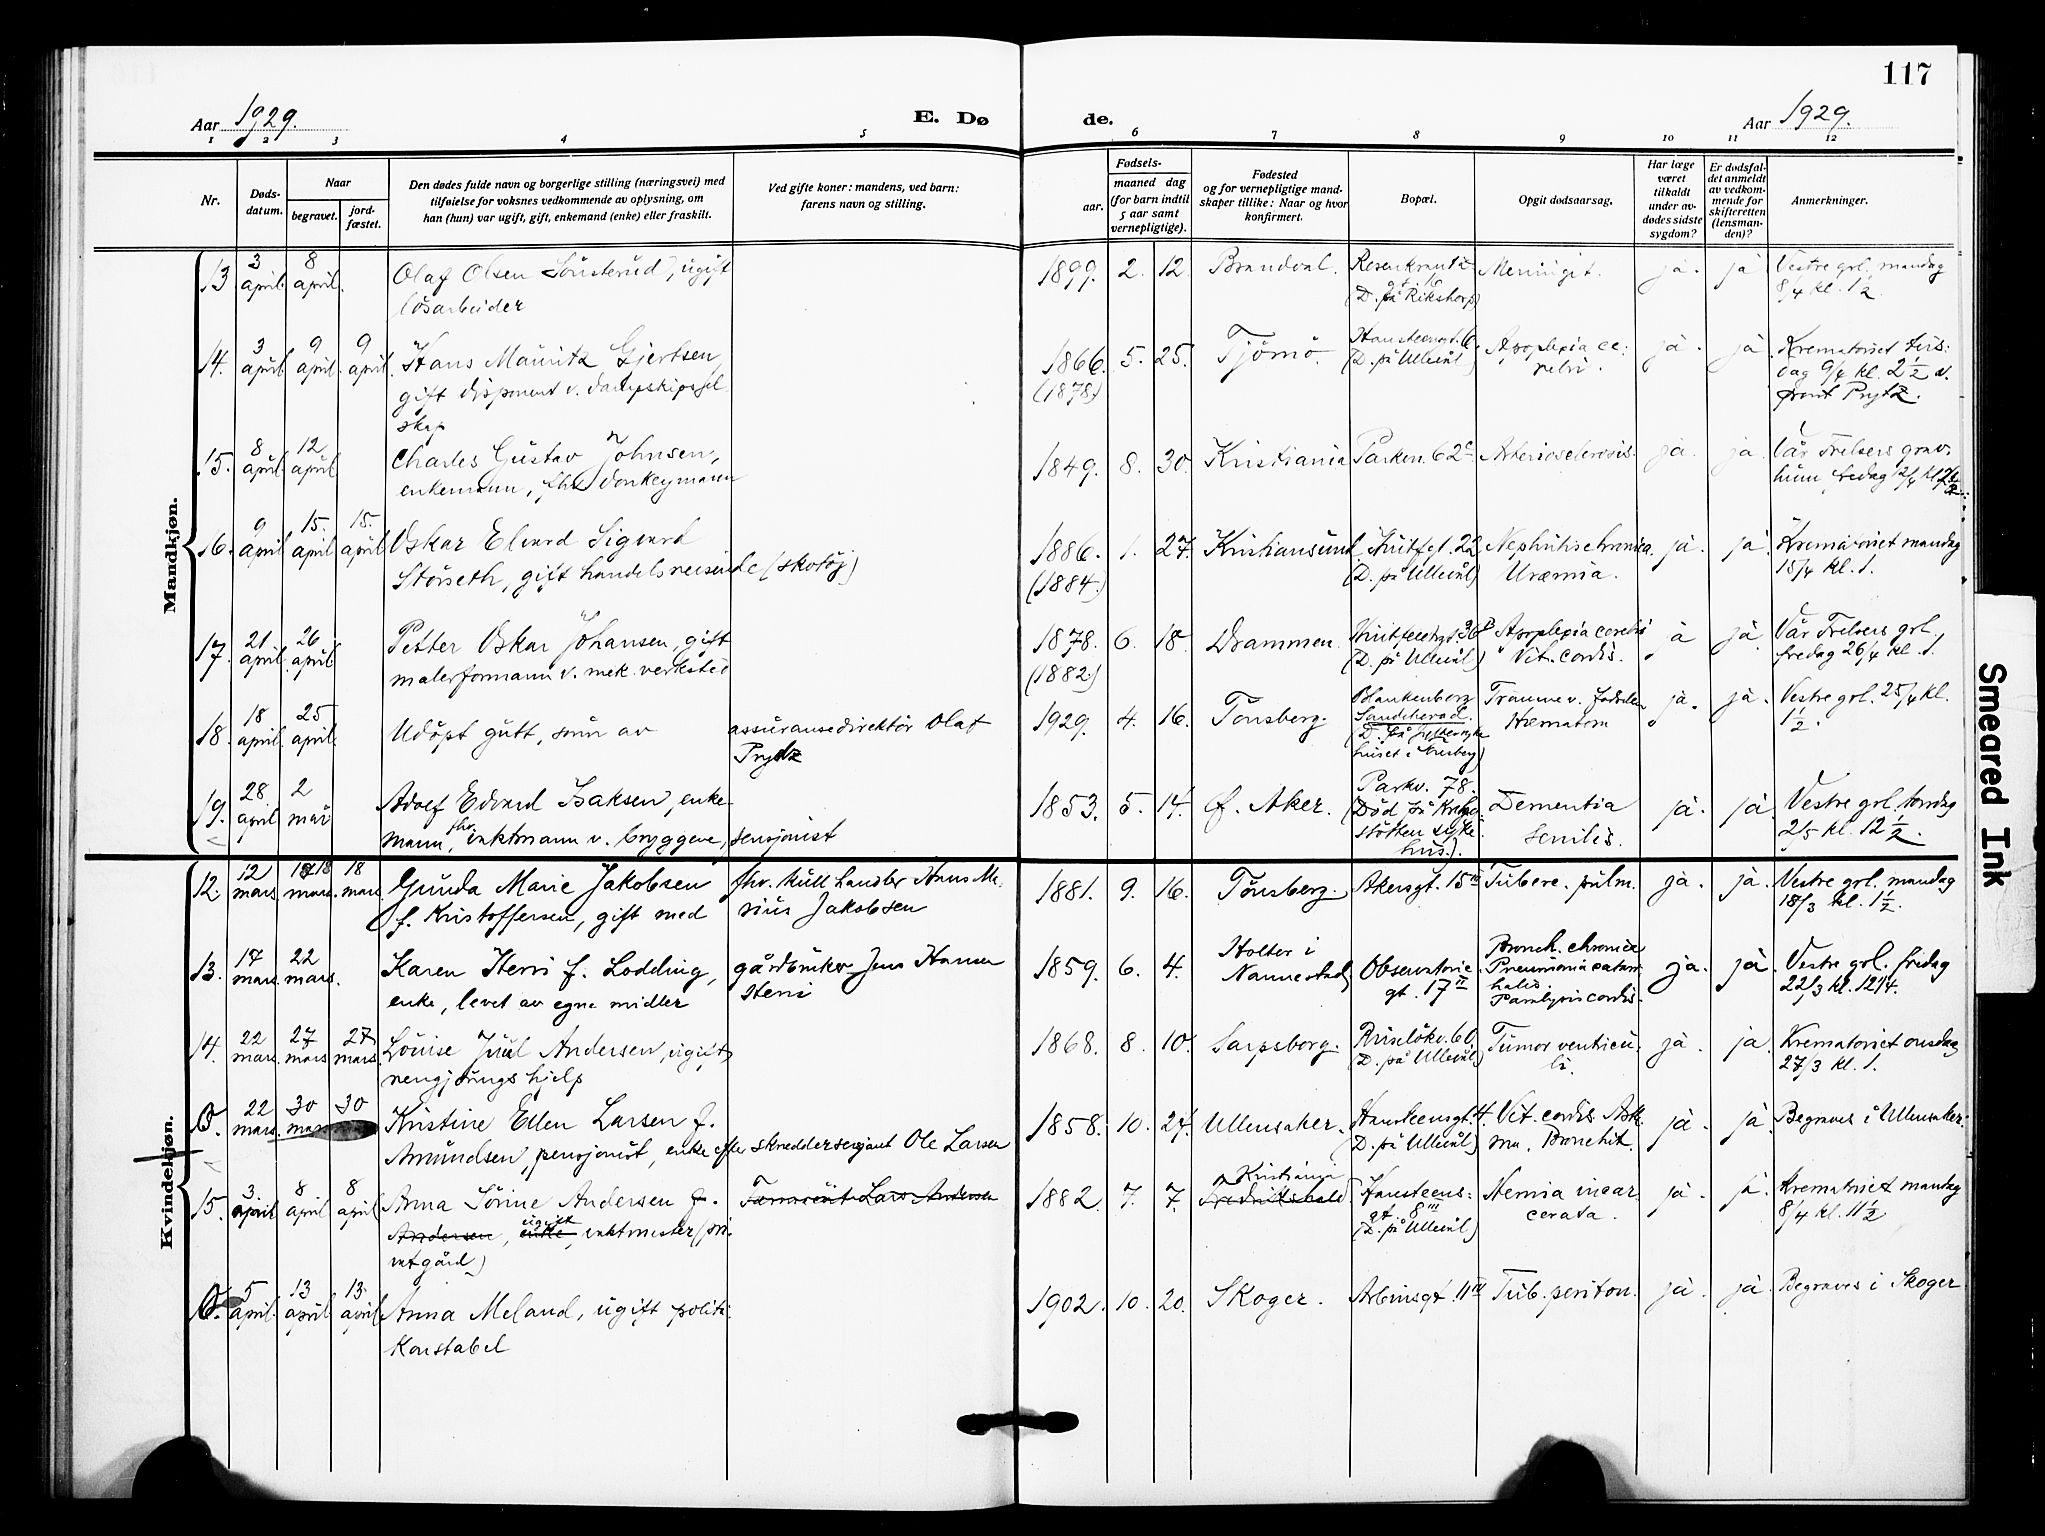 117
Aar 1929.
E. Dø
de.
Aar 1929.
1 2 3 4 5 6 7 8 9 10 11 12
Nr.
Døds-
datum.
Naar
begravet.
jord-
fæstet.
Den dødes fulde navn og borgerlige stilling (næringsvei) med
tilføielse for voksnes vedkommende av oplysning, om
han (hun) var ugift, gift, enkemand (enke) eller fraskilt.
Ved gifte koner: mandens, ved barn:
farens navn og stilling.
Fødsels-
aar.
maaned dag
(for barn indtil
5 aar samt
vernepligtige).
Fødested
og for vernepligtige mand-
skaper tillike: Naar og hvor
konfirmert.
Bopæl.
Opgit dødsaarsag.
Har læge
været
tilkaldt
under av-
dødes sidste
sygdom?
Er dødsfal-
det anmeldt
av vedkom-
mende for
skifteretten
(lensman-
den)?
Anmerkninger.
Mandkjøn.
13 3 april. 8 april.
Olaf Olsen Sönsterud, ugift
løsarbeider
1899. 2. 12. Brandval.
Rosenkrantz
gt.
(D. på Rikshosp)
Meningit. ja. ja
Vestre grl. mandag
8/4 kl. 1½.
14. 3 april 9 april. 9 april
Hans Mauritz Gjertsen,
gift disponent v. dampskipssel
skap
1866. (1878) 5. 25. Tjömö.
Hansteensgt. 6
(D. på Ullevål)
Apoplexia ce:
rebri. ja. ja
Krematoriet tirs:
dag 9/4 kl. 2½ v.
prost Prytz.
15. 8 april. 12 april
Charles Gustav Johnsen,
enkemann, fhv. donkeymann
1849. 8. 30. Kristiania Parkv. 62c. Arteriosclerosis. ja. ja.
Vår Frelsers grav
lund fredag 12/4
16. 9 april 15. april 15. april
Oskar Edvard Sigvard
Störseth, gift handelsreisende (skotöj)
1886. (1884.) 1. 27. Kristiansund
Huitfel. 22
(D. på Ullevål)
Nephritis chronica
Uræmia. ja. ja.
Krematoriet mandag
15/4 kl. 1.
17. 21 april. 26 april
Petter Oskar Johansen, gift
malerformann v. mek. verksted
1878. (1882) 6. 18. Drammen.
Huitfeldtgt. 36
(D. på Ullevål)
Apoplexia cerebri
Vit. cordis. ja ja.
Vår Frelsers grl.
fredag 26/4 kl. 1.
18. 18 april. 25 april.
Udöpt gutt, sönn av
assuransedirektör Olaf
Prytz
1929. 4. 16. Tönsberg.
Blankenborg
Sandeherad.
huset i Tönsberg)
Traume v. födselen
Hæmatom ja. ja.
Vestre grl. 25/4 kl.
1½.
19. 28 april 2 mai
Adolf Edvard Isaksen, enke
mann, fhv. vaktmann v. bryggeve, pensjonist
1853. 5. 14. f. Aker.
Parkv. 78.
(Död på Krohg
stötten syke
hus.).
Dementia
senilis. ja. ja
Vestre grl. torsdag
2/5 kl. 12½.
Kvindekjøn.
12. 12 mars 18 mars. 18 mars
Gunda Marie Jakobsen
f. Kristoffersen, gift med
fhv. kullhandler Hans Ma-
rius Jakobsen
1881. 9. 16. Tönsberg. Akersgt. 15III Tuberc. pulm. ja. ja.
Vestre grl. mandag
18/3 kl. 1½.
13. 17 mars. 22 mars.
Karen Hem f. Lodding,
enke, levet av egne midler
gårdbruker Jens Hansen
Hem
1859. 6. 4.
Holter i
Nannestad
Observatorie
gt. 17II
Bronch. chronica
Pneumonia catarr
halis
Paralysis cordis. ja. ja
Vestre grl. fredag
22/3 kl. 12¼.
14. 22 mars. 27 mars 27 mars
Louise Juul Andersen, ugift,
rengjöringshjelp
1868. 8. 10. Sarpsborg.
Ruselökv. 60.
(D. på Ullevål)
Tumor ventricu:
li. ja. ja.
Krematoriet onsdag
27/3 kl. 1.
O. 22 mars. 30 mars 30
Kristine Ellen Larsen f.
Amundsen, pensjonist, enke efter skreddersersjant Ole Larsen
1858. 10. 27. Ullensaker.
Hansteensgt. 4.
(D. på Ullevål)
Vit. cordis Asth
ma. Bronchit. ja. ja.
Begraves i Ullensaker.
15. 3 april 8 april 8 april
Anna Sörine Andersen f.
Andersen, ugift enke, vaktmester (pri-
vatgård)
Lars Andersen
1882. 7. 7.
Kristiania
Fredrikshald
Hansteens:
gt. 8III
(D. på Ullevål)
Hernia incar
cerata. ja. ja.
Krematoriet mandag
8/4 kl. 11½
O. 5 april. 13 april 13. april
Anna Meland, ugift politi:
konstabel
1902. 10. 20. Skoger. Arbinsgt. 11IV Tub. periton. ja. ja.
Begraves i Skoger
Smeared Ink